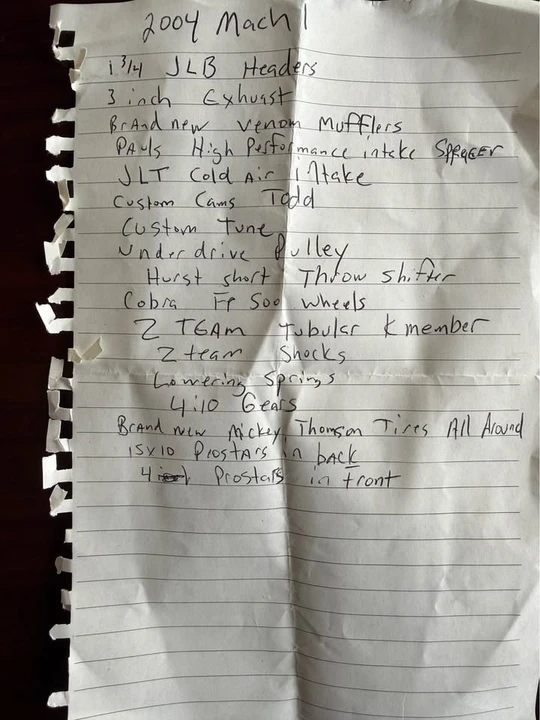 2004 Mach 1
1 3/4 JLB Headers
3 inch Exhuast
Brand new Venom Mufflers
Pauls High Performance intake Spracer
JLT Cold Air intake
Custom Cams Todd
Custom Tune
Under drive Pulley
Hurst short Throw shifter
Cobra FP 500 Wheels
Z TEAM Tubular K member
Z team Shocks
Lowering Springs
4:10 Gears
Brand new Mickey Thomson Tires All Around
15x10 Prostars in back
4 Prostars in front